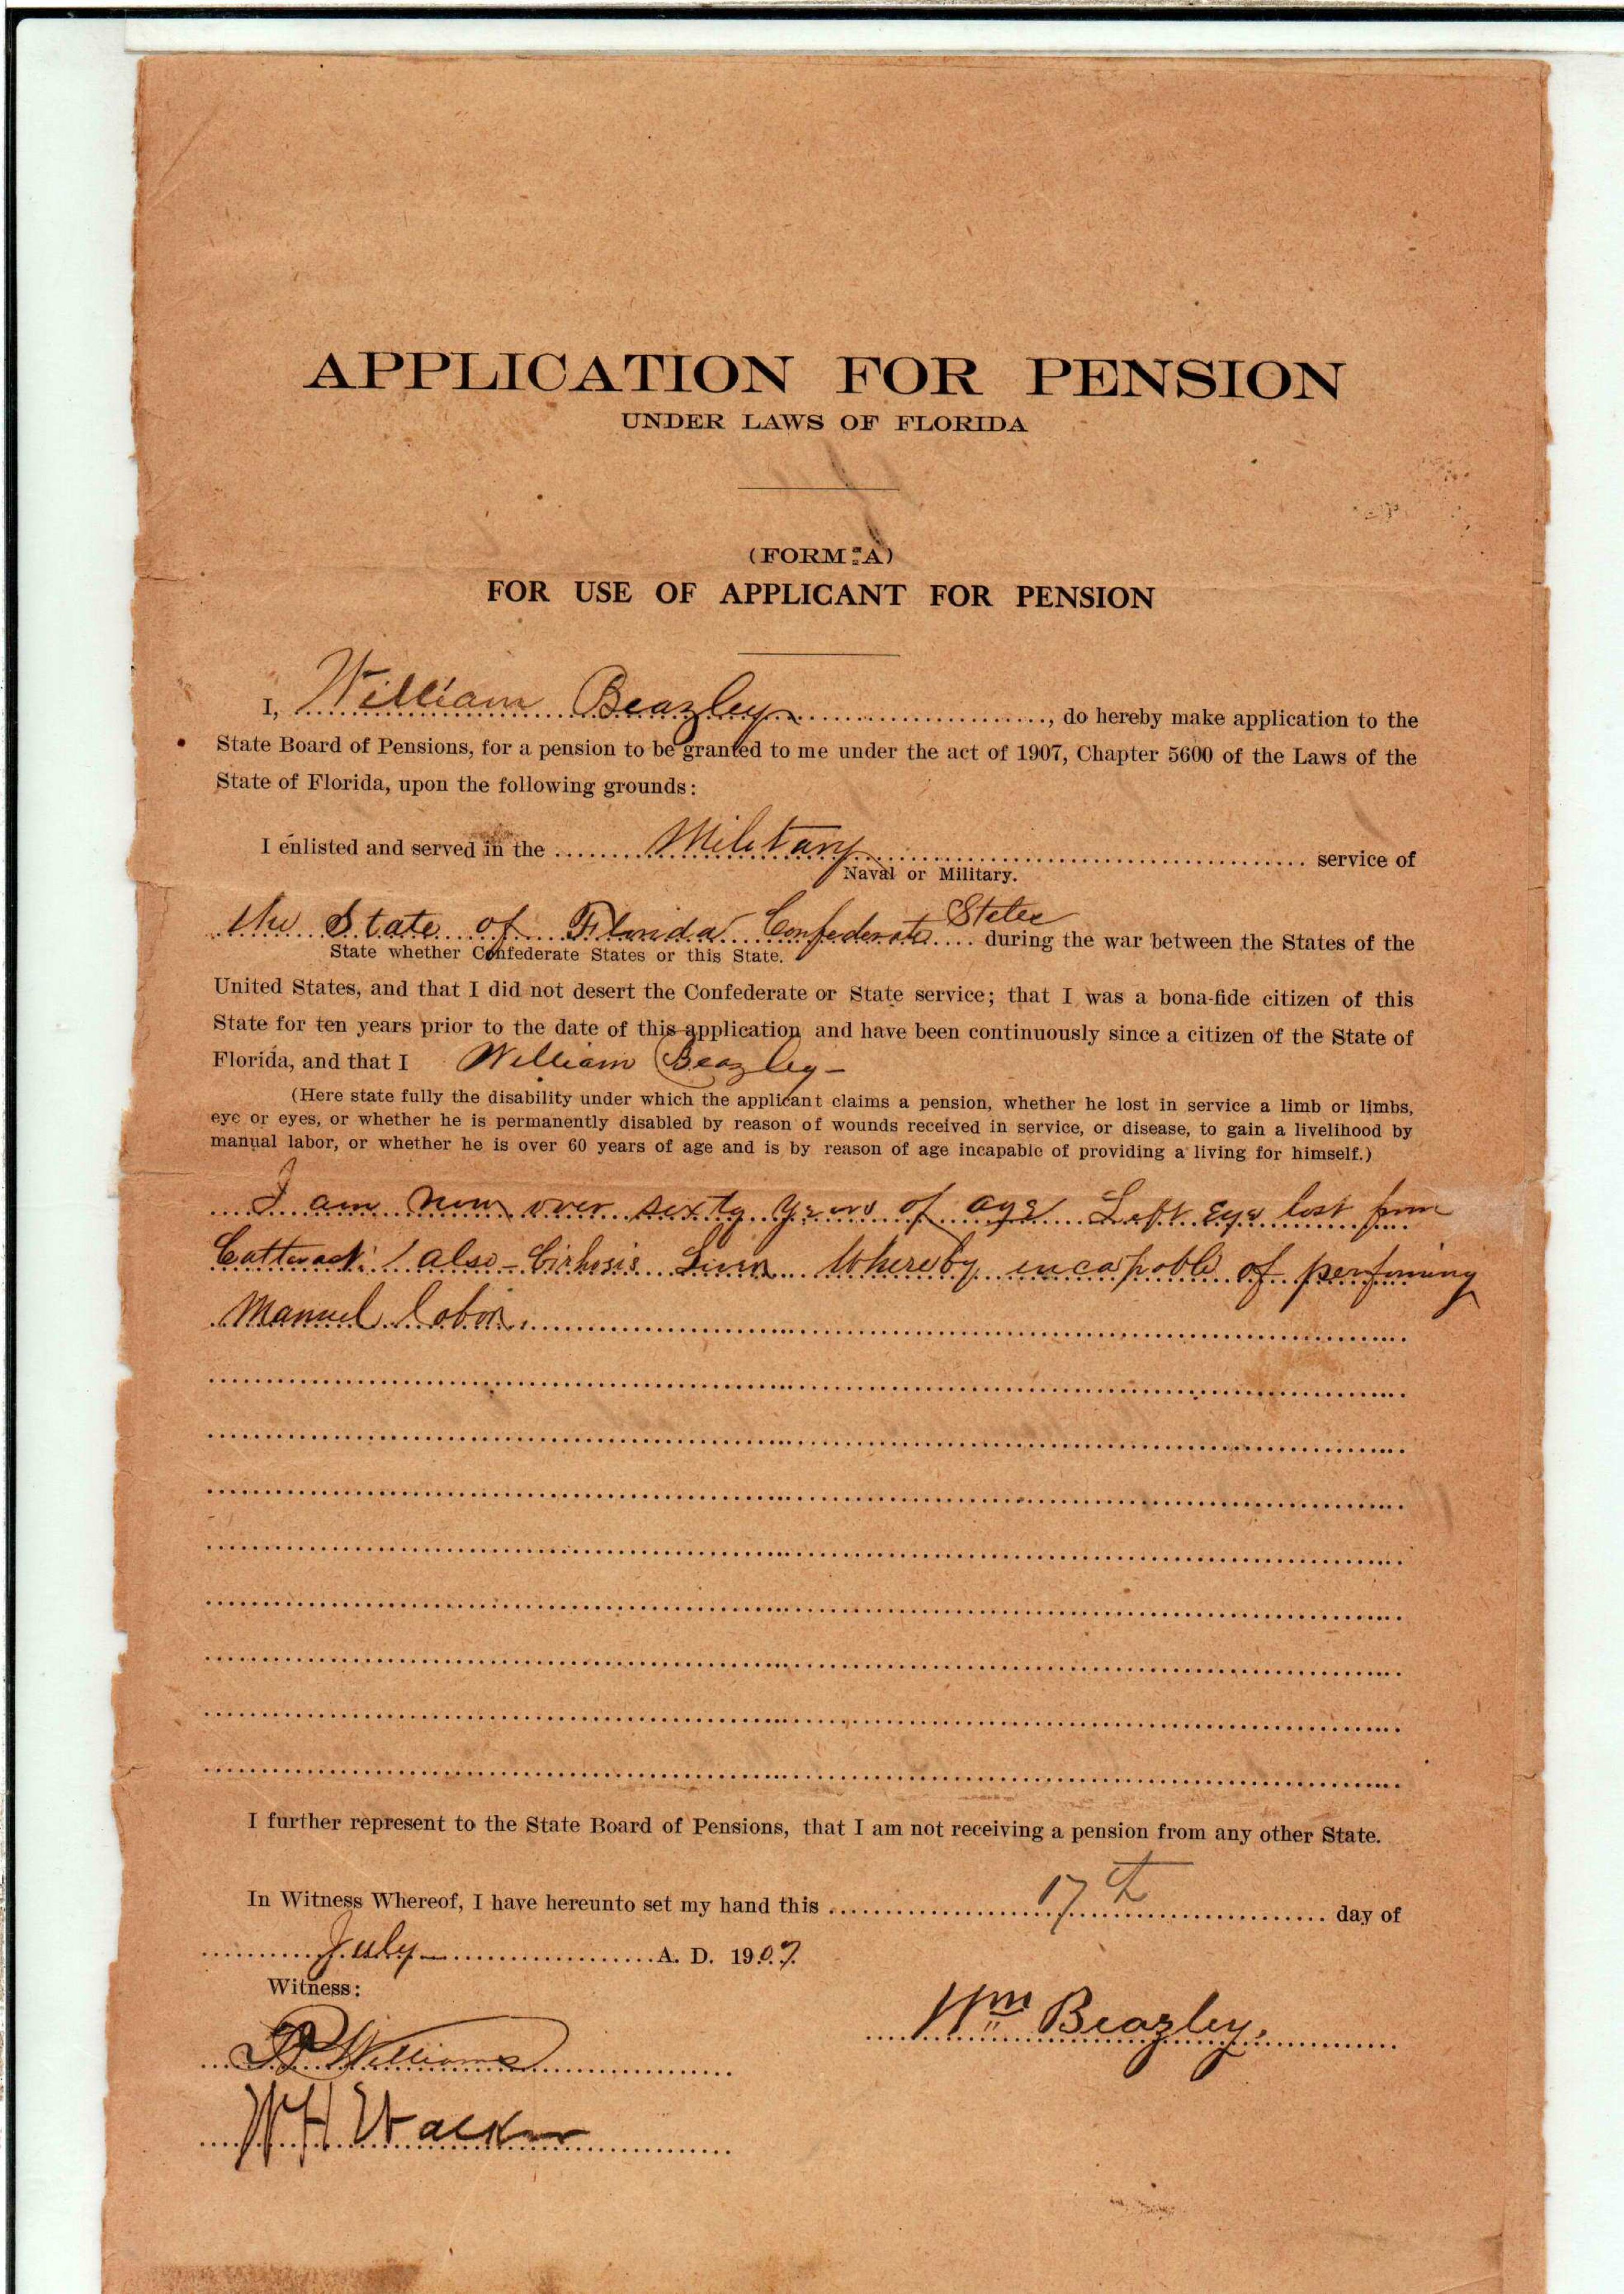 APPLICATION FOR PENSION
UNDER LAWS OF FLORIDA
(FORM A)
FOR USE OF APPLICANT FOR PENSION
I, William Beazley, do hereby make application to the
State Board of Pensions, for a pension to be granted to me under the act of 1907, Chapter 5600 of the Laws of the
State of Florida, upon the following grounds:
I enlisted and served in the Military service of
Naval or Military.
the State of Florida Confederate States during the war between the States of the
State whether Confederate States or this State.
United States, and that I did not desert the Confederate or State service; that I was a bona-fide citizen of this
State for ten years prior to the date of this application and have been continuously since a citizen of the State of
Florida, and that I William Beazley
(Here state fully the disability under which the applicant claims a pension, whether he lost in service a limb or limbs,
eye or eyes, or whether he is permanently disabled by reason of wounds received in service, or disease, to gain a livelihood by
manual labor, or whether he is over 60 years of age and is by reason of age incapable of providing a living for himself.)
I am now over sixty years of age Left Eye lost from
Catteract. also - Cirhosis Liver Whereby incapable of perforing
Manuel labor.
I further represent to the State Board of Pensions, that I am not receiving a pension from any other State.
In Witness Whereof, I have hereunto set my hand this 17th day of
July A. D. 1907.
Witness:
Wm Beazley.
Williams
W H Walker